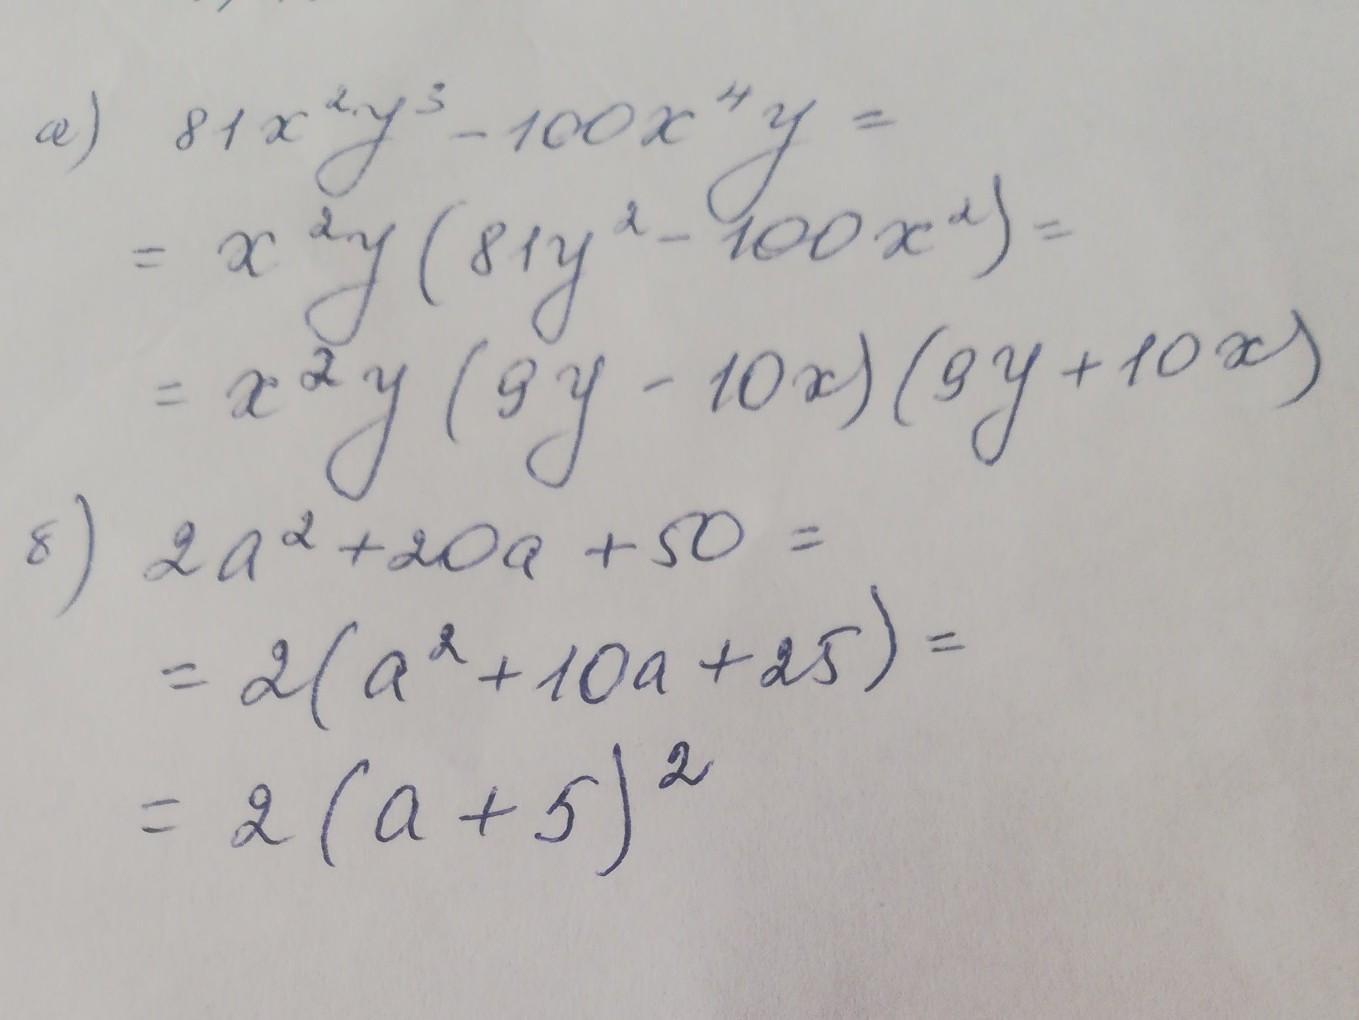 а) 81x²y³ - 100x⁴y =
= x²y (81y² - 100x²) =
= x²y (9y - 10x) (9y + 10x)
б) 2a² + 20a + 50 =
= 2(a² + 10a + 25) =
= 2(a + 5)²